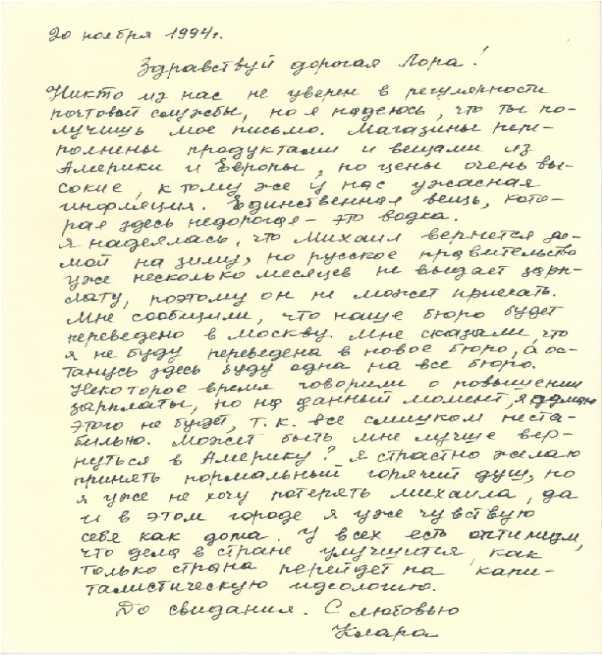 20 ноября 1994г.
Здравствуй дорогая Лора!
Никто из нас не уверен в регулярности
почтовой службы, но я надеюсь, что ты по-
лучишь мое письмо. Магазины пере-
полнены продуктами и вещами из
Америки и Европы, но цены очень вы-
сокие, к тому же у нас ужасная
инфляция. Единственная вещь, кото-
рая здесь недорогая - это водка.
Я надеялась, что Михаил вернется до-
мой на зиму, но русское правительство
уже несколько месяцев не выдает зарп-
лату, поэтому он не может приехать.
Мне сообщили, что наше бюро будет
переведено в Москву. Мне сказали, что
я не буду переведена в новое бюро, а ос-
танусь здесь буду одна на все бюро.
Некоторое время говорили о повышении
зарплаты, но на данный момент, я думаю
этого не будет, т.к. все слишком неста-
бильно. Может быть мне лучше вер-
нуться в Америку? Я страстно желаю
принять нормальный горячий душ, но
я уже не хочу потерять Михаила, да
и в этом городе я уже чувствую
себя как дома. У всех есть оптимизм,
что дела в стране улучшится, как
только страна перейдет на капи-
талистическую идеологию.
До свидания. С любовью
Клара